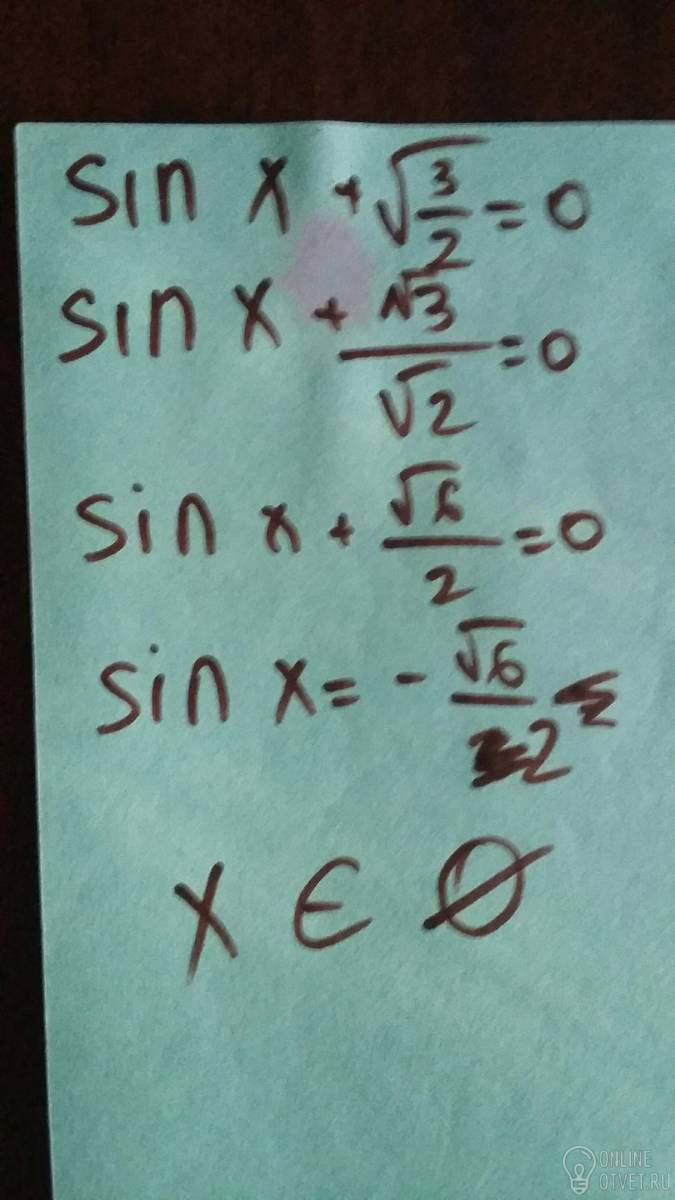 sin x + √3/2 = 0
sin x + √3/√2 = 0
sin x + √6/2 = 0
sin x = - √6/2
x ∈ Ø
ONLINE
OTVET.RU